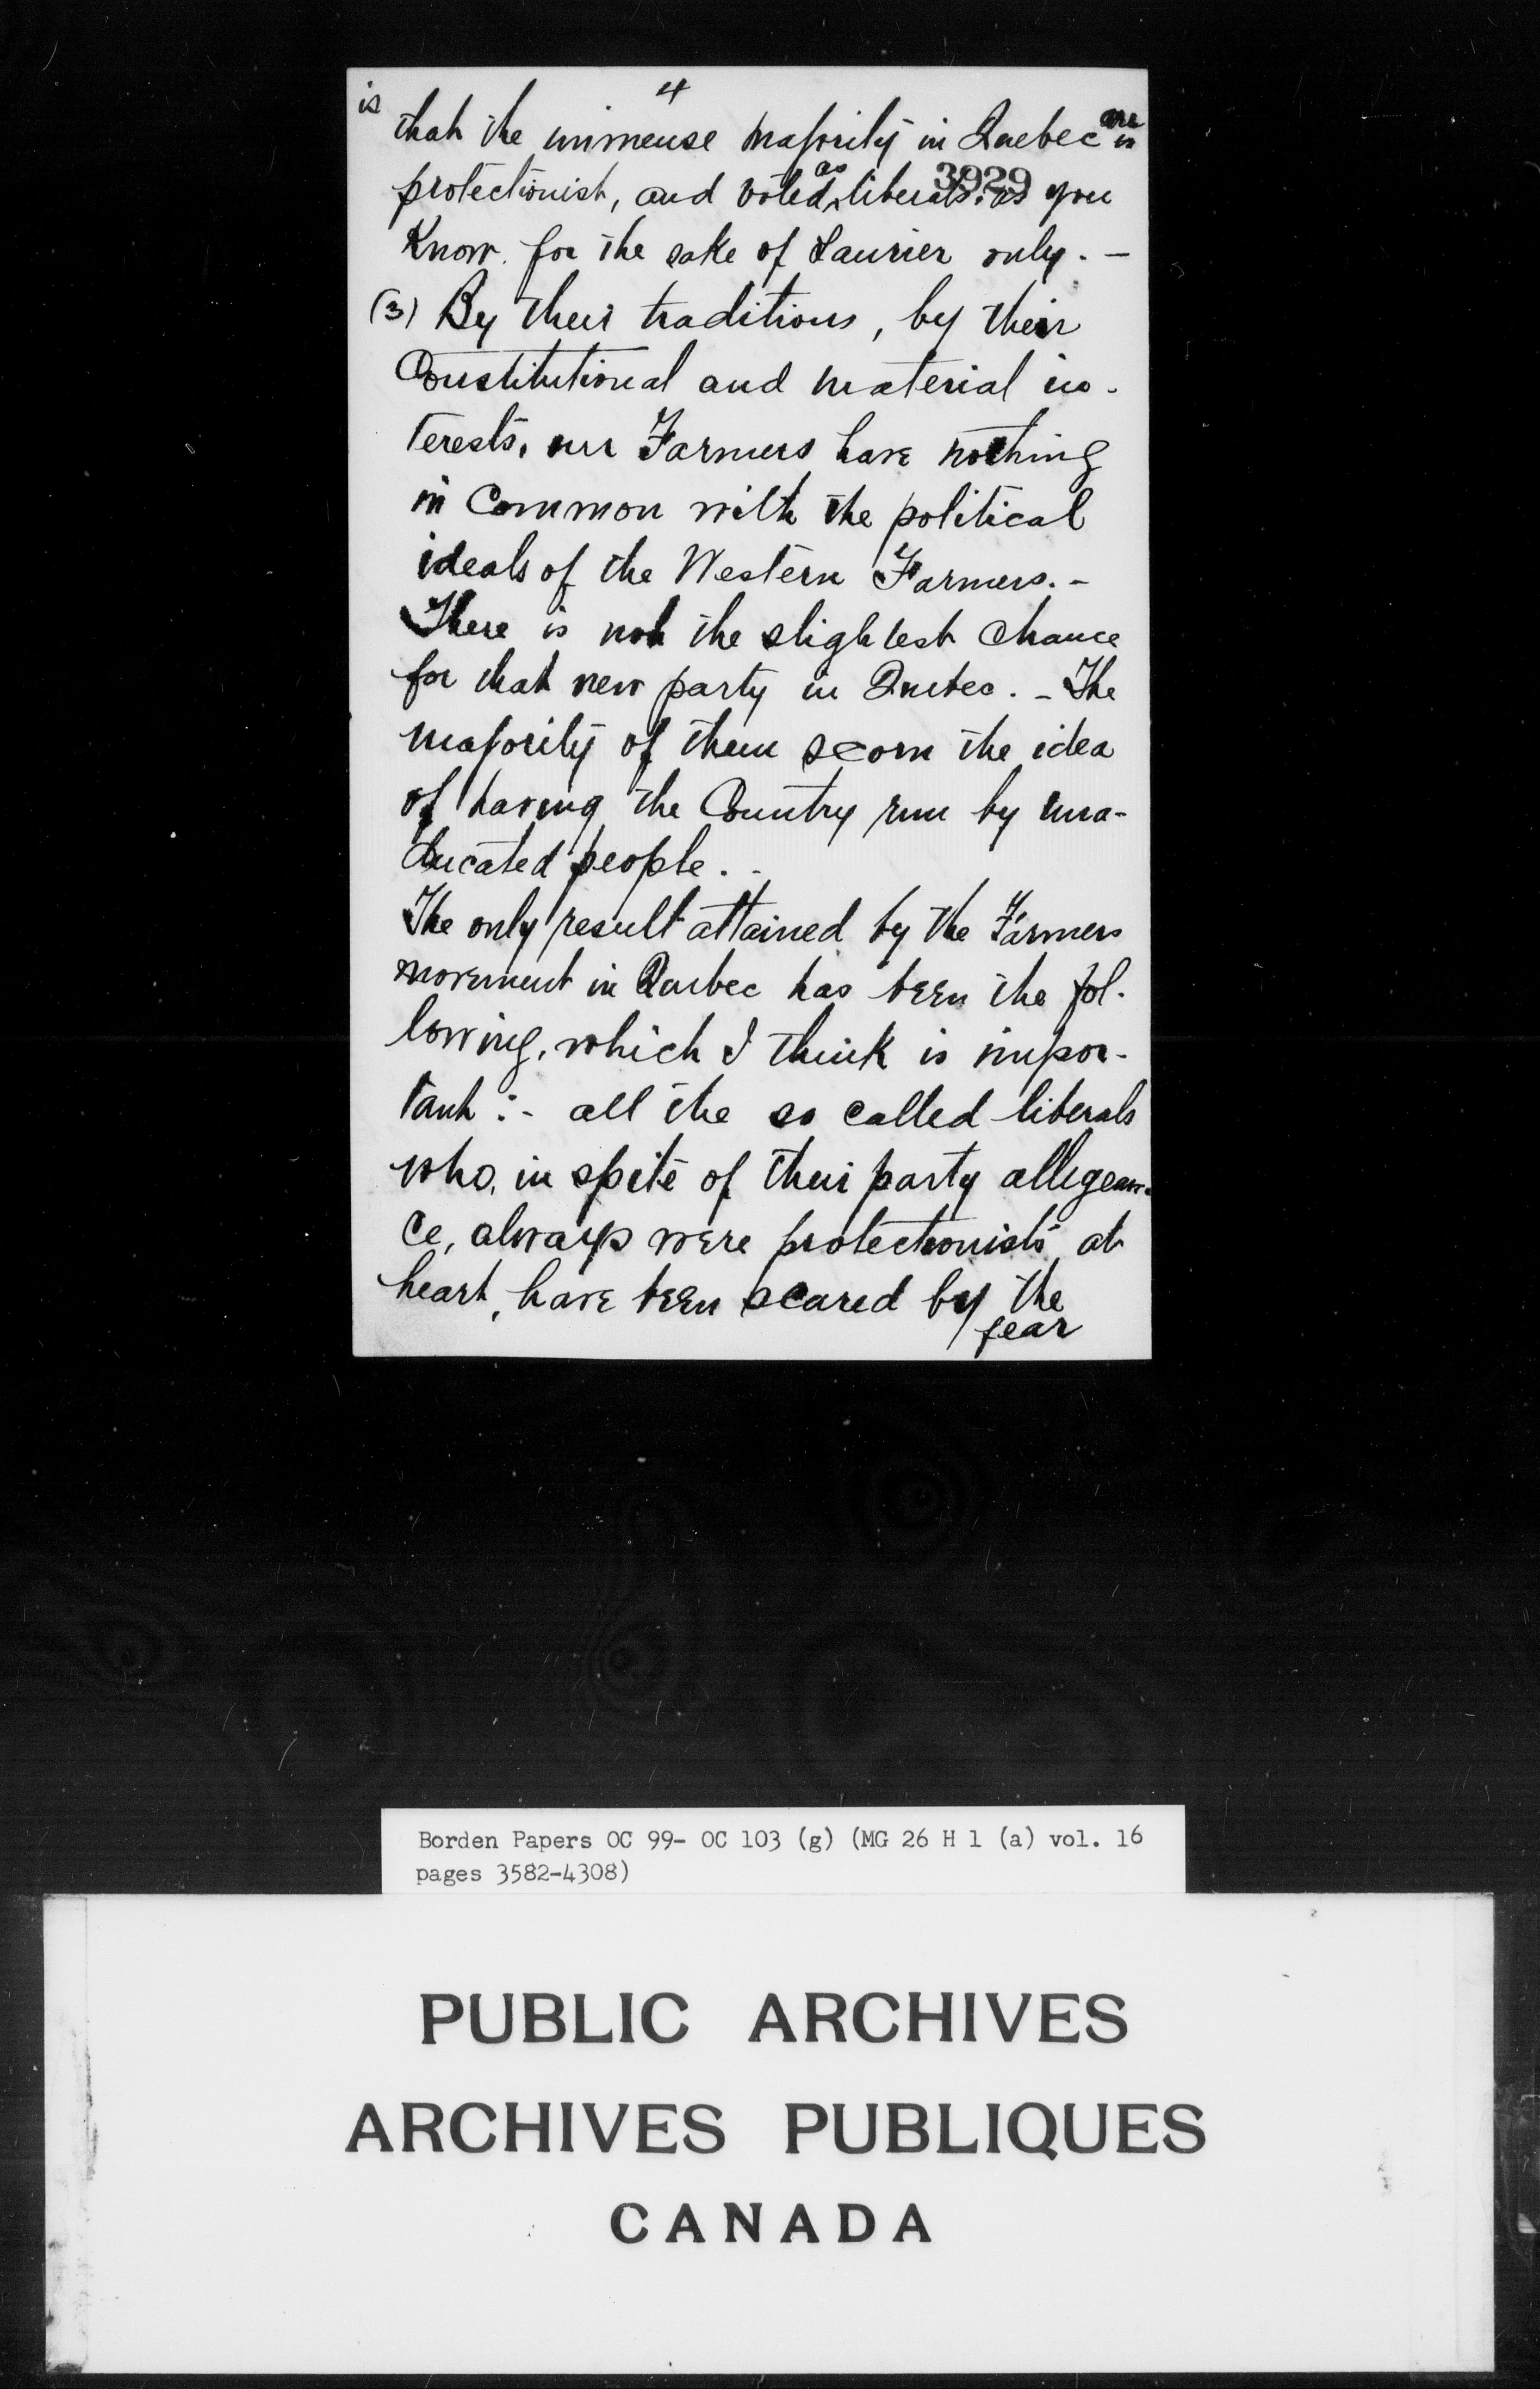 4
is that the immense majority in Quebec are is
3929
protectionist, and voted as liberals, as you
Know. for the sake of Laurier only. -
(3) By their traditions, by their
Constitutional and material in-
terests, our Farmers have nothing
in Common with the political
ideals of the Western Farmers. -
There is not the slightest chance
for that new party in Quebec. - The
majority of them scorn the idea
of having the Country run by une-
ducated people. -
The only result attained by the Farmers
movement in Quebec has been the fol-
lowing, which I think is impor-
tant :- all the so called liberals
who, in spite of their party allegean-
ce, always were protectionists at
heart, have been scared by the
fear
Borden Papers OC 99- OC 103 (g) (MG 26 H 1 (a) vol. 16
pages 3582-4308)
PUBLIC ARCHIVES
ARCHIVES PUBLIQUES
CANADA